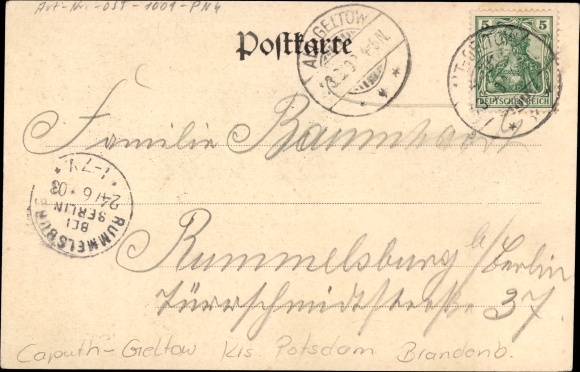 Art-Nr: OST-1001-PN4
Postkarte
ALT-GELTOW
5 5
DEUTSCHES REICH
Familie
RUMMELSBURG
BEI
BERLIN
24/6 03
1-2N
Rummelsburg b/Berlin
Türrschmidtstraße 37.
Caputh-Geltow Krs Potsdam Brandenb.